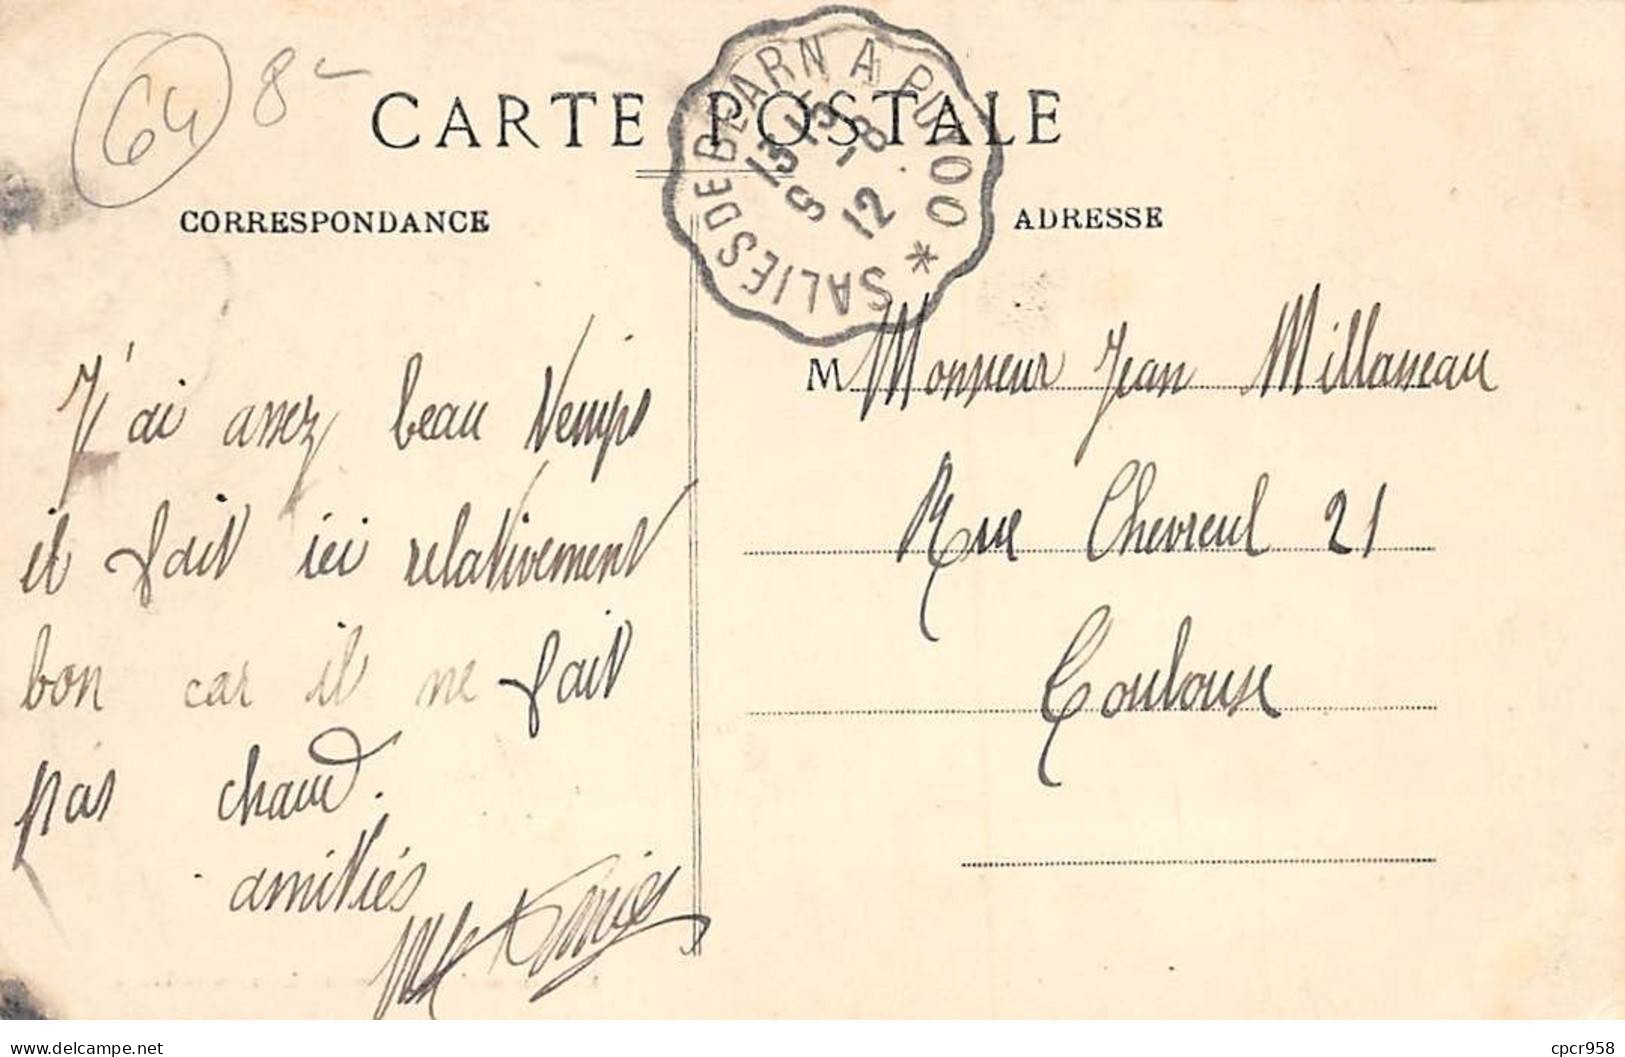 64 8-
CARTE POSTALE
SALIES DE BEARN A PUYOO *
13-15
S -8
12
CORRESPONDANCE
ADRESSE
J'ai assez beau temps
il fait ici relativement
bon car il ne fait
pas chaud.
amitiés
M Monsieur Jean Millasseau
Rue Chevreul 21
Toulouse
delcampe.net
cpcr958